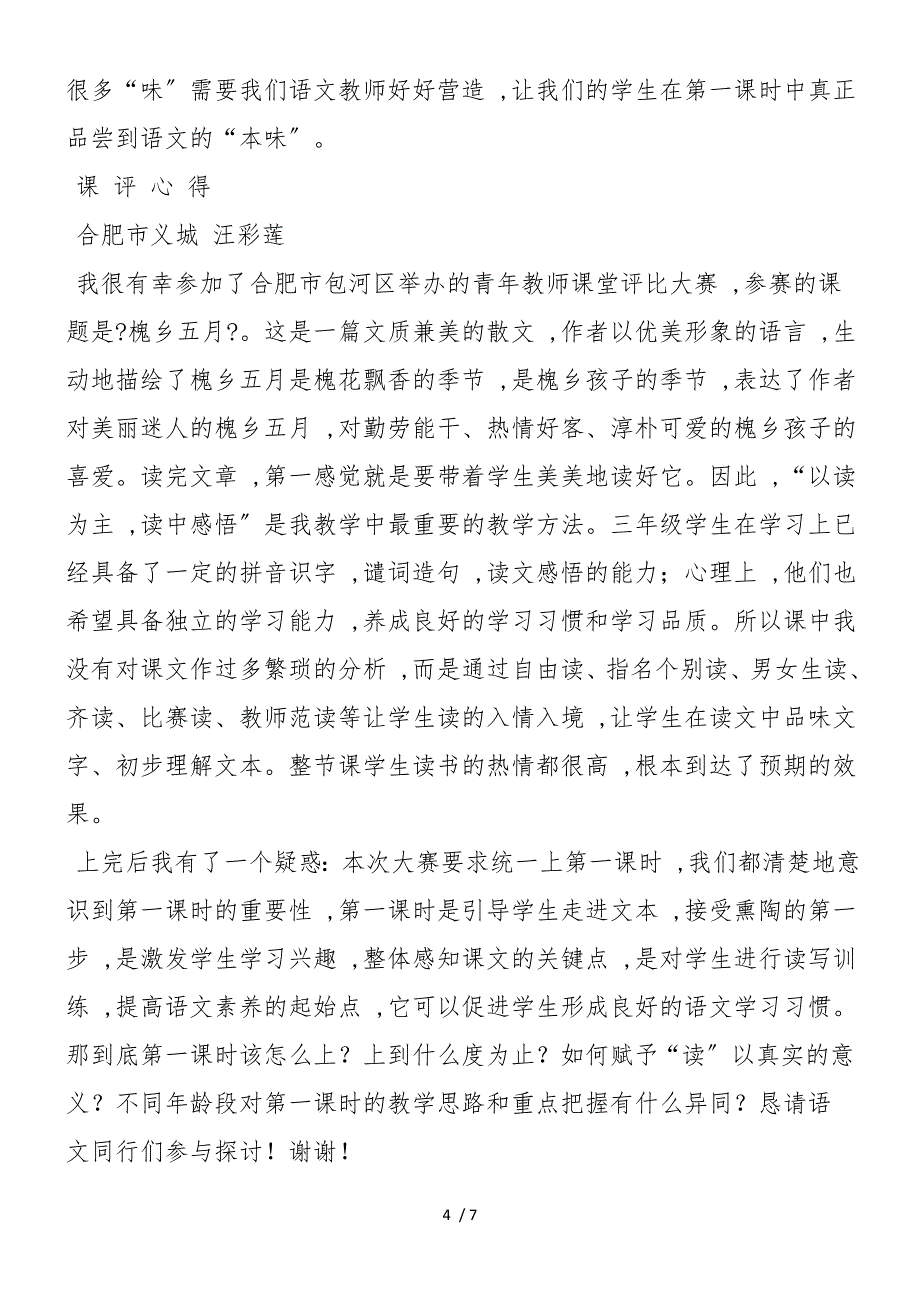 很多“味〞需要我们语文教师好好营造 ,让我们的学生在第一课时中真正
品尝到语文的“本味〞。
课 评 心 得
合肥市义城 汪彩莲
我很有幸参加了合肥市包河区举办的青年教师课堂评比大赛 ,参赛的课
题是?槐乡五月?。这是一篇文质兼美的散文 ,作者以优美形象的语言 ,生
动地描绘了槐乡五月是槐花飘香的季节 ,是槐乡孩子的季节 ,表达了作者
对美丽迷人的槐乡五月 ,对勤劳能干、热情好客、淳朴可爱的槐乡孩子的
喜爱。读完文章 ,第一感觉就是要带着学生美美地读好它。因此 ,“以读
为主 ,读中感悟〞是我教学中最重要的教学方法。三年级学生在学习上已
经具备了一定的拼音识字 ,谴词造句 ,读文感悟的能力；心理上 ,他们也
希望具备独立的学习能力 ,养成良好的学习习惯和学习品质。所以课中我
没有对课文作过多繁琐的分析 ,而是通过自由读、指名个别读、男女生读、
齐读、比赛读、教师范读等让学生读的入情入境 ,让学生在读文中品味文
字、初步理解文本。整节课学生读书的热情都很高 ,根本到达了预期的效
果。
上完后我有了一个疑惑：本次大赛要求统一上第一课时 ,我们都清楚地意
识到第一课时的重要性 ,第一课时是引导学生走进文本 ,接受熏陶的第一
步 ,是激发学生学习兴趣 ,整体感知课文的关键点 ,是对学生进行读写训
练 ,提高语文素养的起始点 ,它可以促进学生形成良好的语文学习习惯。
那到底第一课时该怎么上？上到什么度为止？如何赋予“读〞以真实的意
义？不同年龄段对第一课时的教学思路和重点把握有什么异同？恳请语
文同行们参与探讨！谢谢！
4 / 7